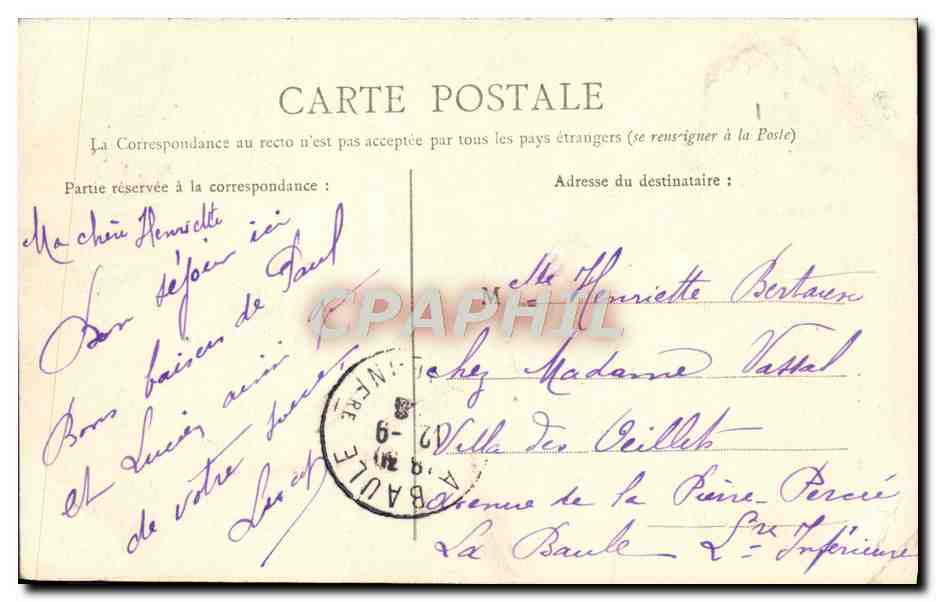 CARTE POSTALE
La Correspondance au recto n'est pas acceptée par tous les pays étrangers (se renseigner à la Poste)
Partie réservée à la correspondance :
Ma chère Henriette
Bon séjour ici
Bons baisers de Paul
et Lucien ainsi
de votre
Adresse du destinataire :
Melle Henriette Bertaux
chez Madame Vassal
Villa des Oeillets
avenue de la Pierre-Percée
La Baule Lre Inférieure
CPAPHIL
LA BAULE
INFRE
12 -9